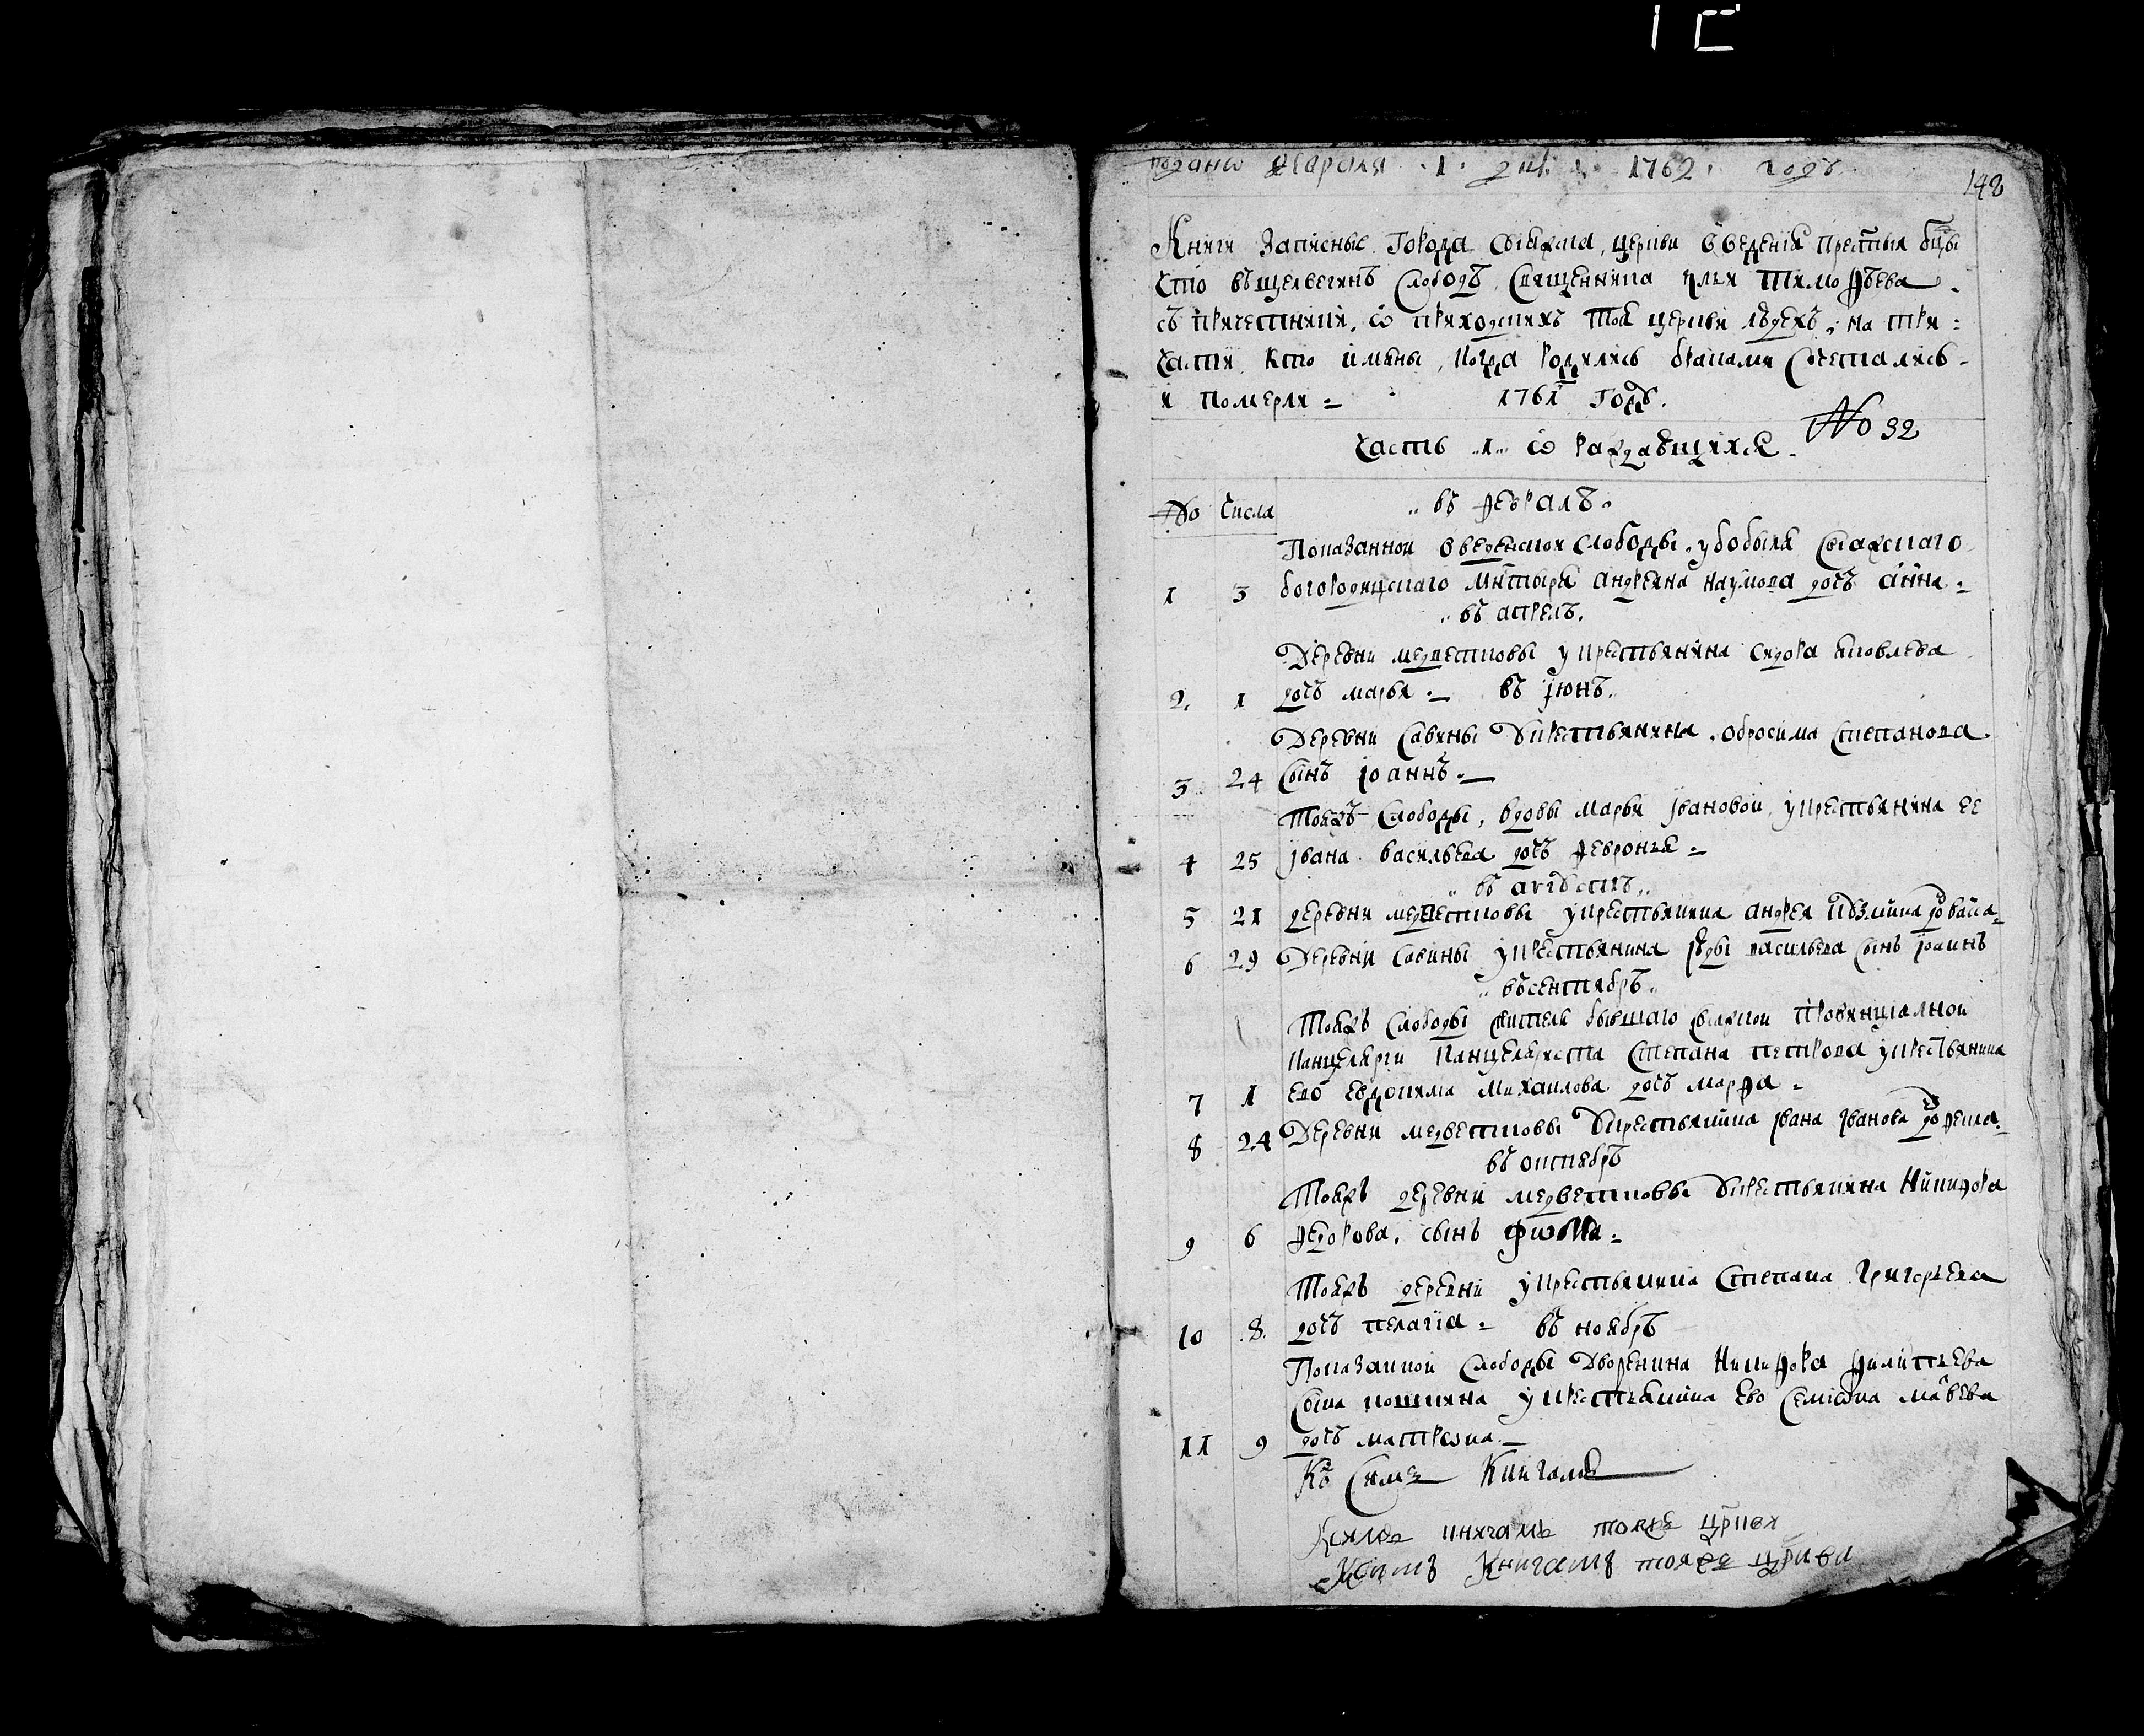 подано февраля 1 дня 1762 году
148
Книги записные города Свияжска, церкви Введения престыя бцы
что въ щелвегинѣ слободѣ, священника Ильи Тимофѣева
съ причетники, ѡ приходскихъ тоя церкви людехъ, на три
части, кто имяны, когда родились браками сочетались
и померли 1761 годъ.
№ 32
Часть 1 ѡ раждающихся
№ Числа въ февралѣ.
Показанной введенской слободы у бобыля свияжскаго
1 3 богородицкаго мнтыря андреяна наумова дочь анна
въ апрелѣ.
Деревни медветковы у крестьянина сидора яковлева
2. 1 дочь марья въ июнѣ.
Деревни савины у крестьянина обросима степанова
3 24 сынъ иоаннъ.
Тояжъ слободы, вдовы марьи ивановой, у крестьянина ее
4 25 ивана васильева дочь февронья
въ августѣ
5 21 деревни медветковы у крестьянина андрея
6 29 Деревни савины у крестьянина васильева сынъ иоаннъ
въ сентябрѣ
Тояжъ слободы жителя бывшаго свияжской провинциалной
канцелярги канцеляриста степана петрова у крестьянина
7 1 ево евдокима михаилова дочь марфа
8 24 Деревни медветковы у крестьянина ивана иванова до фекла
въ октябрѣ
Тояжъ деревни медветковы у крестьянина никифора
9 6 федорова, сынъ фома
Тояжъ деревни у крестьянина степана григорьева
10 8. дочь пелагиа въ ноябрѣ
Показанной слободы дворенина никифора филипьева
сына у крестьянина ево семиона мавева
11 9 дочь матрона
Ко симъ книгамъ
Ксимъ книгамъ тояже цркви
Ксимъ книгамъ тояже цркви